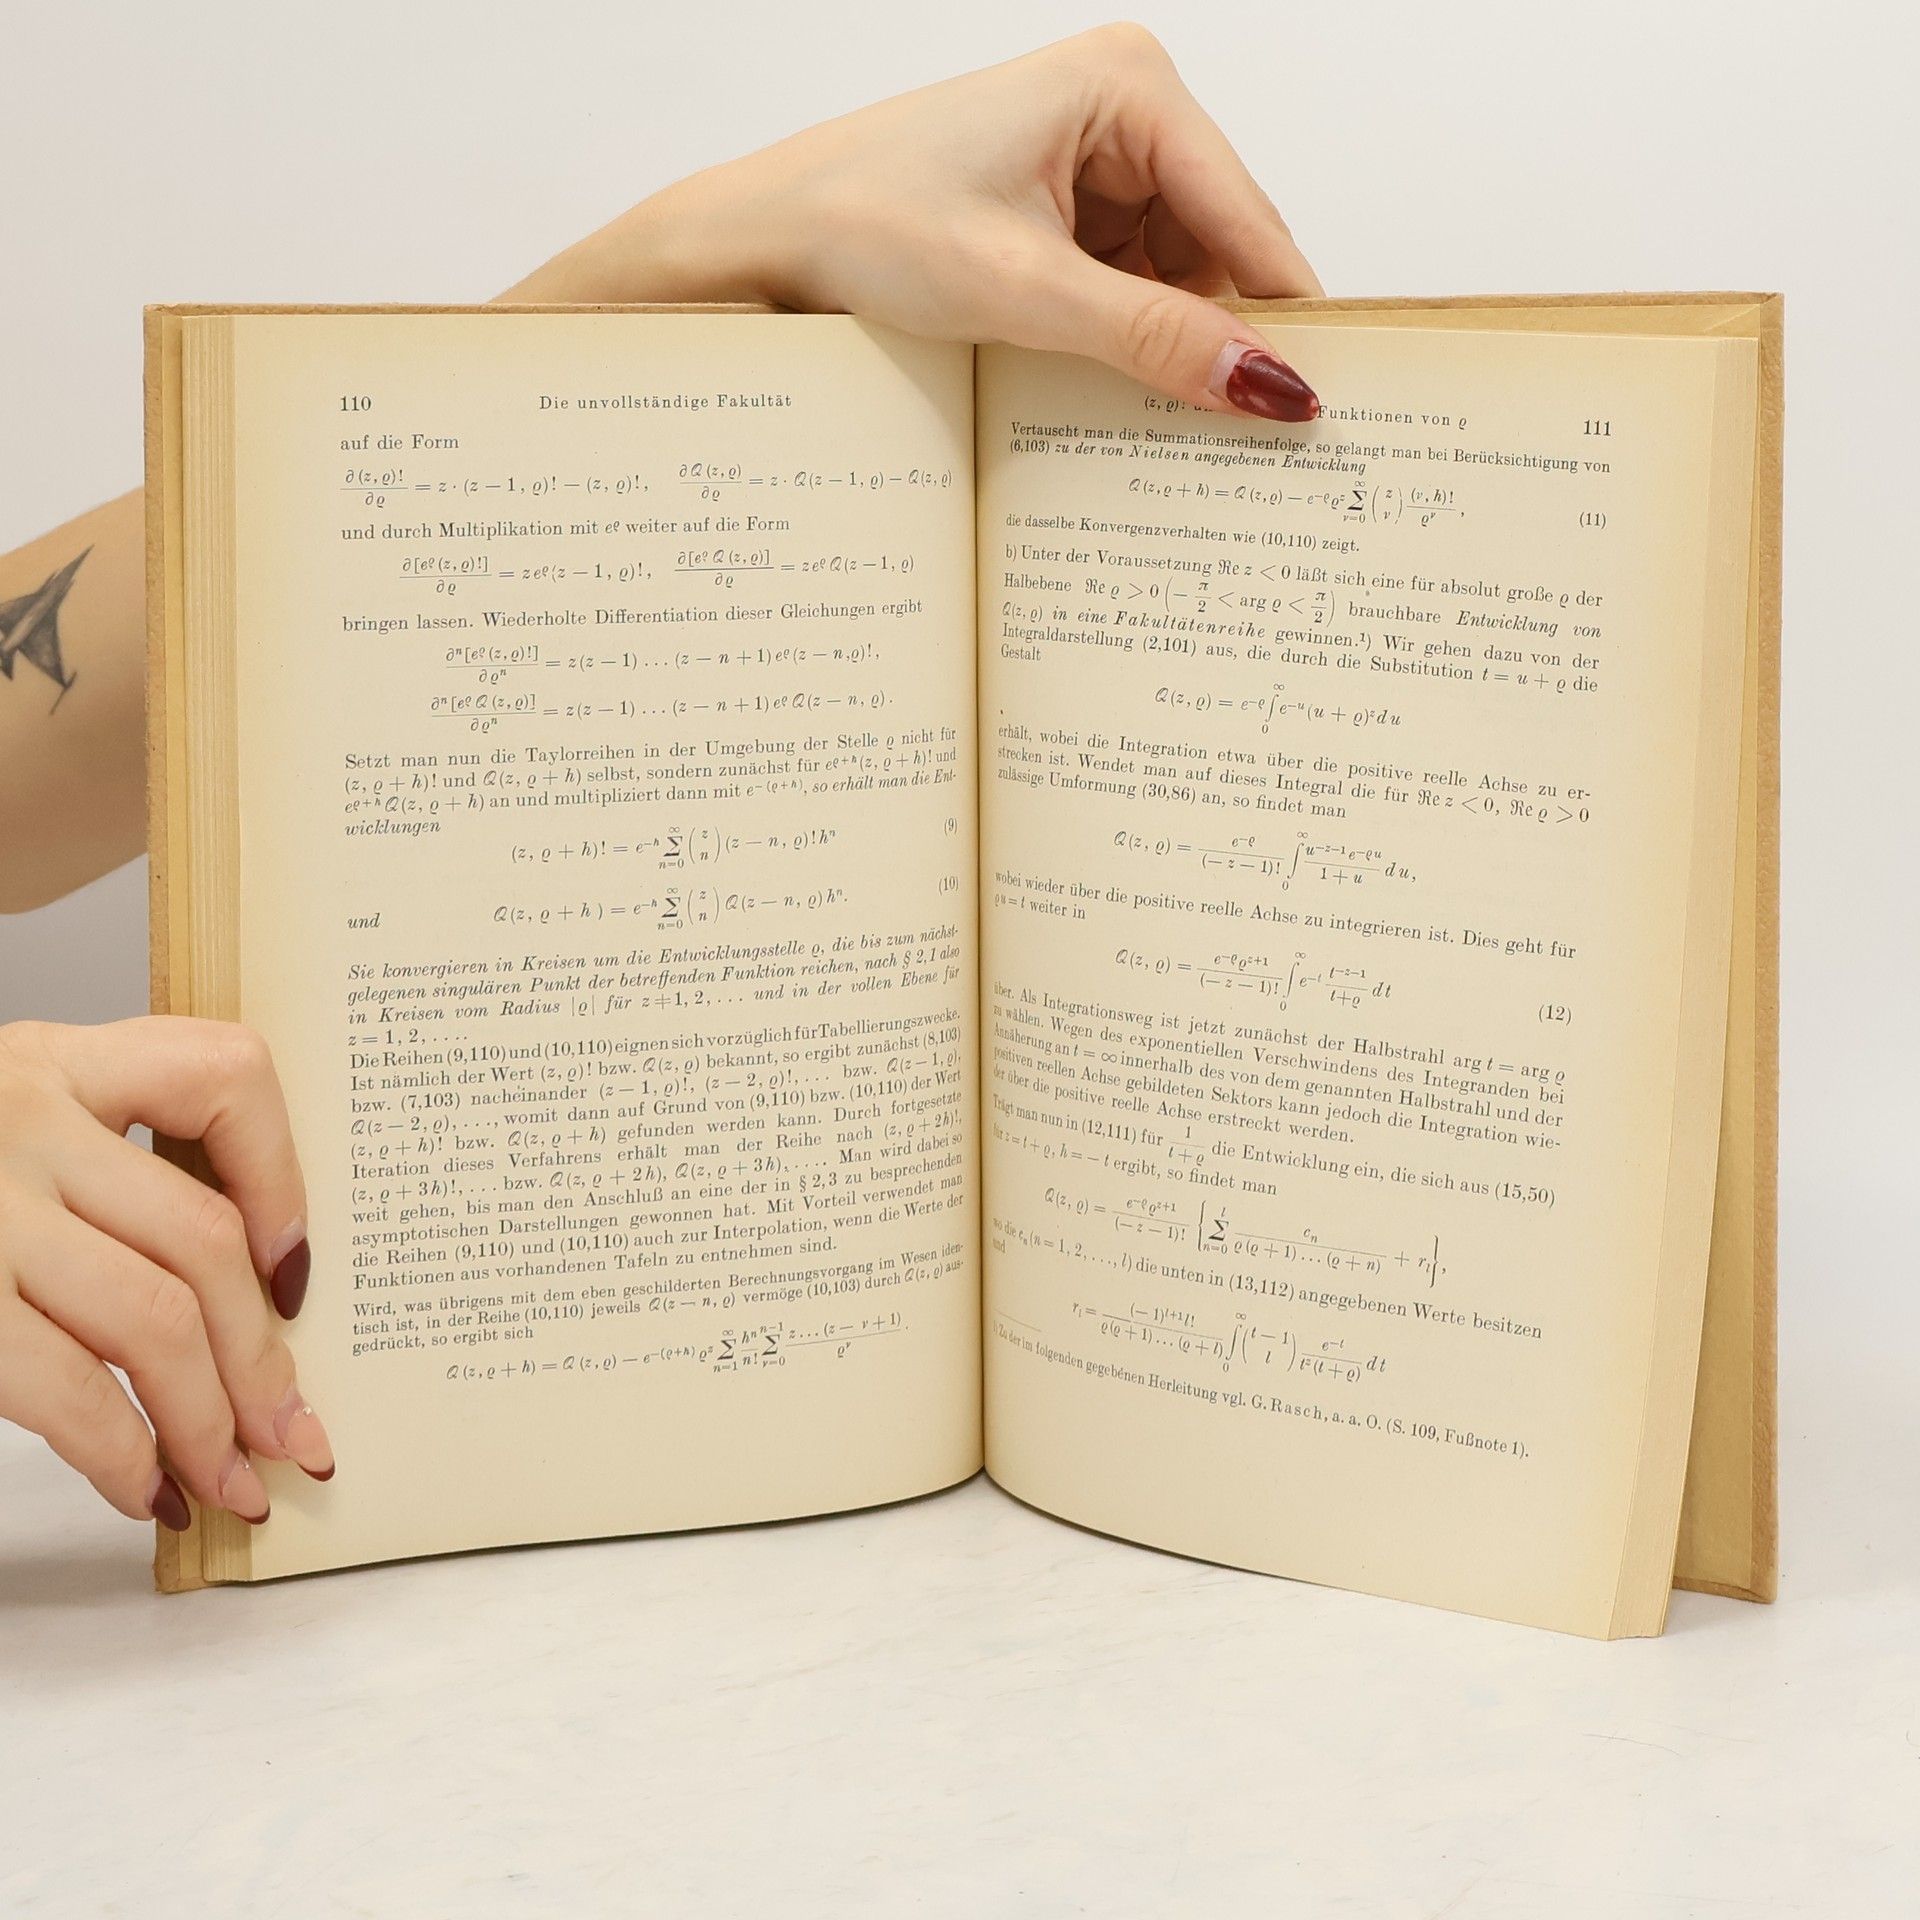 110 Die unvollständige Fakultät
auf die Form
∂(z, ϱ)!/∂ϱ = z · (z − 1, ϱ)! − (z, ϱ)!, ∂Q(z, ϱ)/∂ϱ = z · Q(z − 1, ϱ) − Q(z, ϱ)
und durch Multiplikation mit e^ϱ weiter auf die Form
∂[e^ϱ (z, ϱ)!]/∂ϱ = z e^ϱ (z − 1, ϱ)!, ∂[e^ϱ Q(z, ϱ)]/∂ϱ = z e^ϱ Q(z − 1, ϱ)
bringen lassen. Wiederholte Differentiation dieser Gleichungen ergibt
∂^n[e^ϱ (z, ϱ)!]/∂ϱ^n = z(z − 1) . . . (z − n + 1) e^ϱ (z − n, ϱ)!,
∂^n[e^ϱ Q(z, ϱ)]/∂ϱ^n = z(z − 1) . . . (z − n + 1) e^ϱ Q(z − n, ϱ).
Setzt man nun die Taylorreihen in der Umgebung der Stelle ϱ nicht für
(z, ϱ + h)! und Q(z, ϱ + h) selbst, sondern zunächst für e^{ϱ+h}(z, ϱ + h)! und
e^{ϱ+h} Q(z, ϱ + h) an und multipliziert dann mit e^{−(ϱ+h)}, so erhält man die Ent-
wicklungen
(z, ϱ + h)! = e^{−h} ∑_{n=0}^{∞} (z n) (z − n, ϱ)! h^n (9)
und
Q(z, ϱ + h) = e^{−h} ∑_{n=0}^{∞} (z n) Q(z − n, ϱ) h^n. (10)
Sie konvergieren in Kreisen um die Entwicklungsstelle ϱ, die bis zum nächst-
gelegenen singulären Punkt der betreffenden Funktion reichen, nach § 2,1 also
in Kreisen vom Radius |ϱ| für z ≠ 1, 2, . . . und in der vollen Ebene für
z = 1, 2, . . . .
Die Reihen (9,110) und (10,110) eignen sich vorzüglich für Tabellierungszwecke.
Ist nämlich der Wert (z, ϱ)! bzw. Q(z, ϱ) bekannt, so ergibt zunächst (8,103)
bzw. (7,103) nacheinander (z − 1, ϱ)!, (z − 2, ϱ)!, . . . bzw. Q(z − 1, ϱ),
Q(z − 2, ϱ), . . ., womit dann auf Grund von (9,110) bzw. (10,110) der Wert
(z, ϱ + h)! bzw. Q(z, ϱ + h) gefunden werden kann. Durch fortgesetzte
Iteration dieses Verfahrens erhält man der Reihe nach (z, ϱ + 2h)!,
(z, ϱ + 3h)!, . . . bzw. Q(z, ϱ + 2h), Q(z, ϱ + 3h), . . . . Man wird dabei so
weit gehen, bis man den Anschluß an eine der in § 2,3 zu besprechenden
asymptotischen Darstellungen gewonnen hat. Mit Vorteil verwendet man
die Reihen (9,110) und (10,110) auch zur Interpolation, wenn die Werte der
Funktionen aus vorhandenen Tafeln zu entnehmen sind.
Wird, was übrigens mit dem eben geschilderten Berechnungsvorgang im Wesen iden-
tisch ist, in der Reihe (10,110) jeweils Q(z − n, ϱ) vermöge (10,103) durch Q(z, ϱ) aus-
gedrückt, so ergibt sich
Q(z, ϱ + h) = Q(z, ϱ) − e^{−(ϱ+h)} ϱ^z ∑_{n=1}^{∞} h^n/n! ∑_{ν=0}^{n−1} z . . . (z − ν + 1)/ϱ^ν .
(z, ϱ)! Funktionen von ϱ 111
Vertauscht man die Summationsreihenfolge, so gelangt man bei Berücksichtigung von
(6,103) zu der von Nielsen angegebenen Entwicklung
Q(z, ϱ + h) = Q(z, ϱ) − e^{−ϱ} ϱ^z ∑_{ν=0}^{∞} (z ν) (ν, h)!/ϱ^ν , (11)
die dasselbe Konvergenzverhalten wie (10,110) zeigt.
b) Unter der Voraussetzung ℜe z < 0 läßt sich eine für absolut große ϱ der
Halbebene ℜe ϱ > 0 (− π/2 < arg ϱ < π/2) brauchbare Entwicklung von
Q(z, ϱ) in eine Fakultätenreihe gewinnen.¹) Wir gehen dazu von der
Integraldarstellung (2,101) aus, die durch die Substitution t = u + ϱ die
Gestalt
Q(z, ϱ) = e^{−ϱ} ∫_0^∞ e^{−u} (u + ϱ)^z du
erhält, wobei die Integration etwa über die positive reelle Achse zu er-
strecken ist. Wendet man auf dieses Integral die für ℜe z < 0, ℜe ϱ > 0
zulässige Umformung (30,86) an, so findet man
Q(z, ϱ) = e^{−ϱ}/(− z − 1)! ∫_0^∞ u^{−z−1} e^{−ϱu}/(1 + u) du,
wobei wieder über die positive reelle Achse zu integrieren ist. Dies geht für
ϱu = t weiter in
Q(z, ϱ) = e^{−ϱ} ϱ^{z+1}/(− z − 1)! ∫_0^∞ e^{−t} t^{−z−1}/(t+ϱ) dt (12)
über. Als Integrationsweg ist jetzt zunächst der Halbstrahl arg t = arg ϱ
zu wählen. Wegen des exponentiellen Verschwindens des Integranden bei
Annäherung an t = ∞ innerhalb des von dem genannten Halbstrahl und der
positiven reellen Achse gebildeten Sektors kann jedoch die Integration wie-
der über die positive reelle Achse erstreckt werden.
Trägt man nun in (12,111) für 1/(t+ϱ) die Entwicklung ein, die sich aus (15,50)
für z = t + ϱ, h = − t ergibt, so findet man
Q(z, ϱ) = e^{−ϱ} ϱ^{z+1}/(− z − 1)! {∑_{n=0}^{l} c_n/(ϱ(ϱ + 1) . . . (ϱ + n)) + r_l},
wo die c_n (n = 1, 2, . . ., l) die unten in (13,112) angegebenen Werte besitzen
und
r_l = (− 1)^{l+1} l!/(ϱ(ϱ + 1) . . . (ϱ + l)) ∫_0^∞ (t − 1 l) e^{−t}/(t^z (t + ϱ)) dt
¹) Zu der im folgenden gegebenen Herleitung vgl. G. Rasch, a. a. O. (S. 109, Fußnote 1).